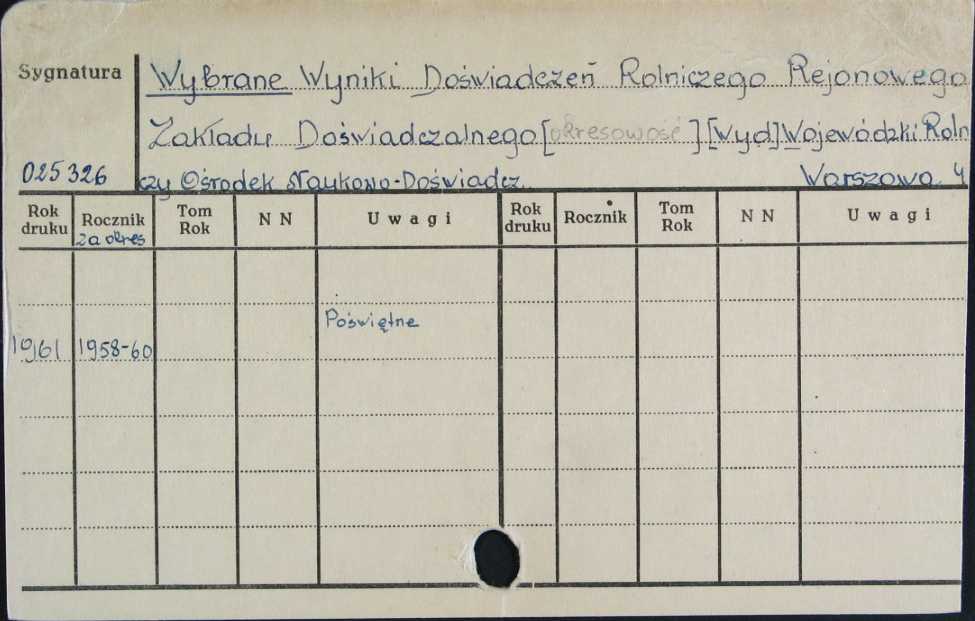 Sygnatura
Wybrane Wyniki Doświadczeń Rolniczego Rejonowego
Zakładu Doświadczalnego [okresowość] [Wyd] Wojewódzki Roln
025326
czy Ośrodek Naukowo-Doświadcz. Warszawa 4
Rok druku Rocznik za okres Tom Rok N N Uwagi Rok druku Rocznik Tom Rok N N Uwagi
Poświętne
1961 1958-60